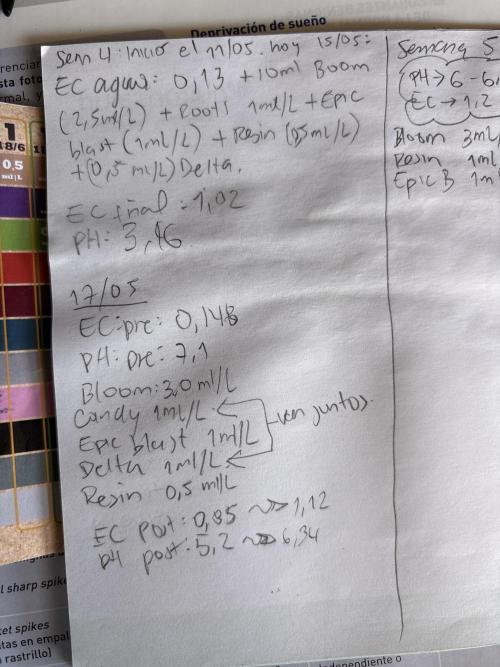 Deprivación de sueño
Sem 4: Inicio el 11/05. hoy 15/05:
EC agua: 0,13 + 10ml Boom
(2,5ml/L) + Roots 1ml/L + Epic
blast (1ml/L) + Resin (0,5ml/L)
+ (0,5 ml/L) Delta.
EC final: 1,02
pH: 3,46
17/05
EC: pre: 0,148
pH: pre: 7,1
Bloom: 3,0 ml/L
Candy 1ml/L
Epic blast 1ml/L
van juntos.
Delta 1ml/L
Resin 0,5 ml/L
EC post: 0,85 ~> 1,12
pH post: 5,2 ~> 6,34
Semana 5
pH → 6 - 6
EC → 1,2
Bloom 3ml/
Resin 1ml
Epic B 1ml
1
18/6
0,5
ml | L
l sharp spik
ket spikes
ntas en empal
n rastrillo)
independiente o